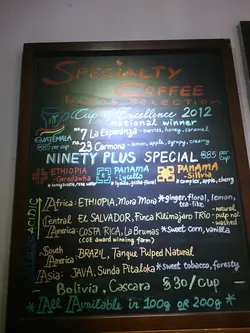 SPECIALTY
COFFEE
Selection
Cup of Excellence 2012
national winner
GUATEMALA
nº 7 La Esperanza - berries, honey, caramel
nº 23 Carmona - lemon, apple, syrupy, creamy
$85 per cup
NINETY PLUS SPECIAL $85 per cup
ETHIOPIA PANAMA PANAMA
- Gerodawna - Lycello - Sillvia
apple, cherry
Africa: ETHIOPIA, Mora Mora *ginger, floral, lemon, tea-like
Central America: EL SALVADOR, Finca Kilimanjaro TRIO - natural - pulp nat. - washed
COSTA RICA, La Brumas *sweet corn, vanilla
(COE award winning farm)
South America: BRAZIL, Tanque Pulped Natural
Asia: JAVA, Sunda Pitaloka *sweet tobacco, foresty
ACIDIC
- Bolivia, Cascara $30/cup -
*All Available in 100g or 200g*